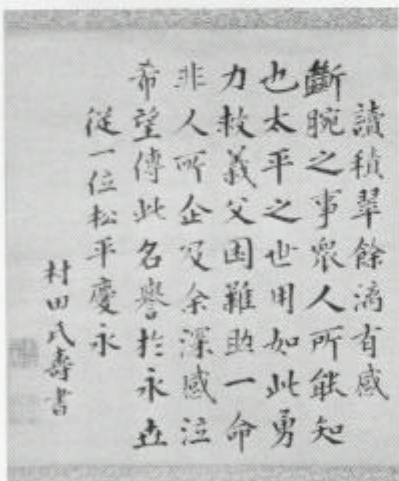 讀積翠餘滴有感
斷腕之事衆人所能知
也太平之世用如此勇
力救義父困難助一命
非人所企及余深感泣
希望傳此名譽於永世
從一位松平慶永
村田氏壽書